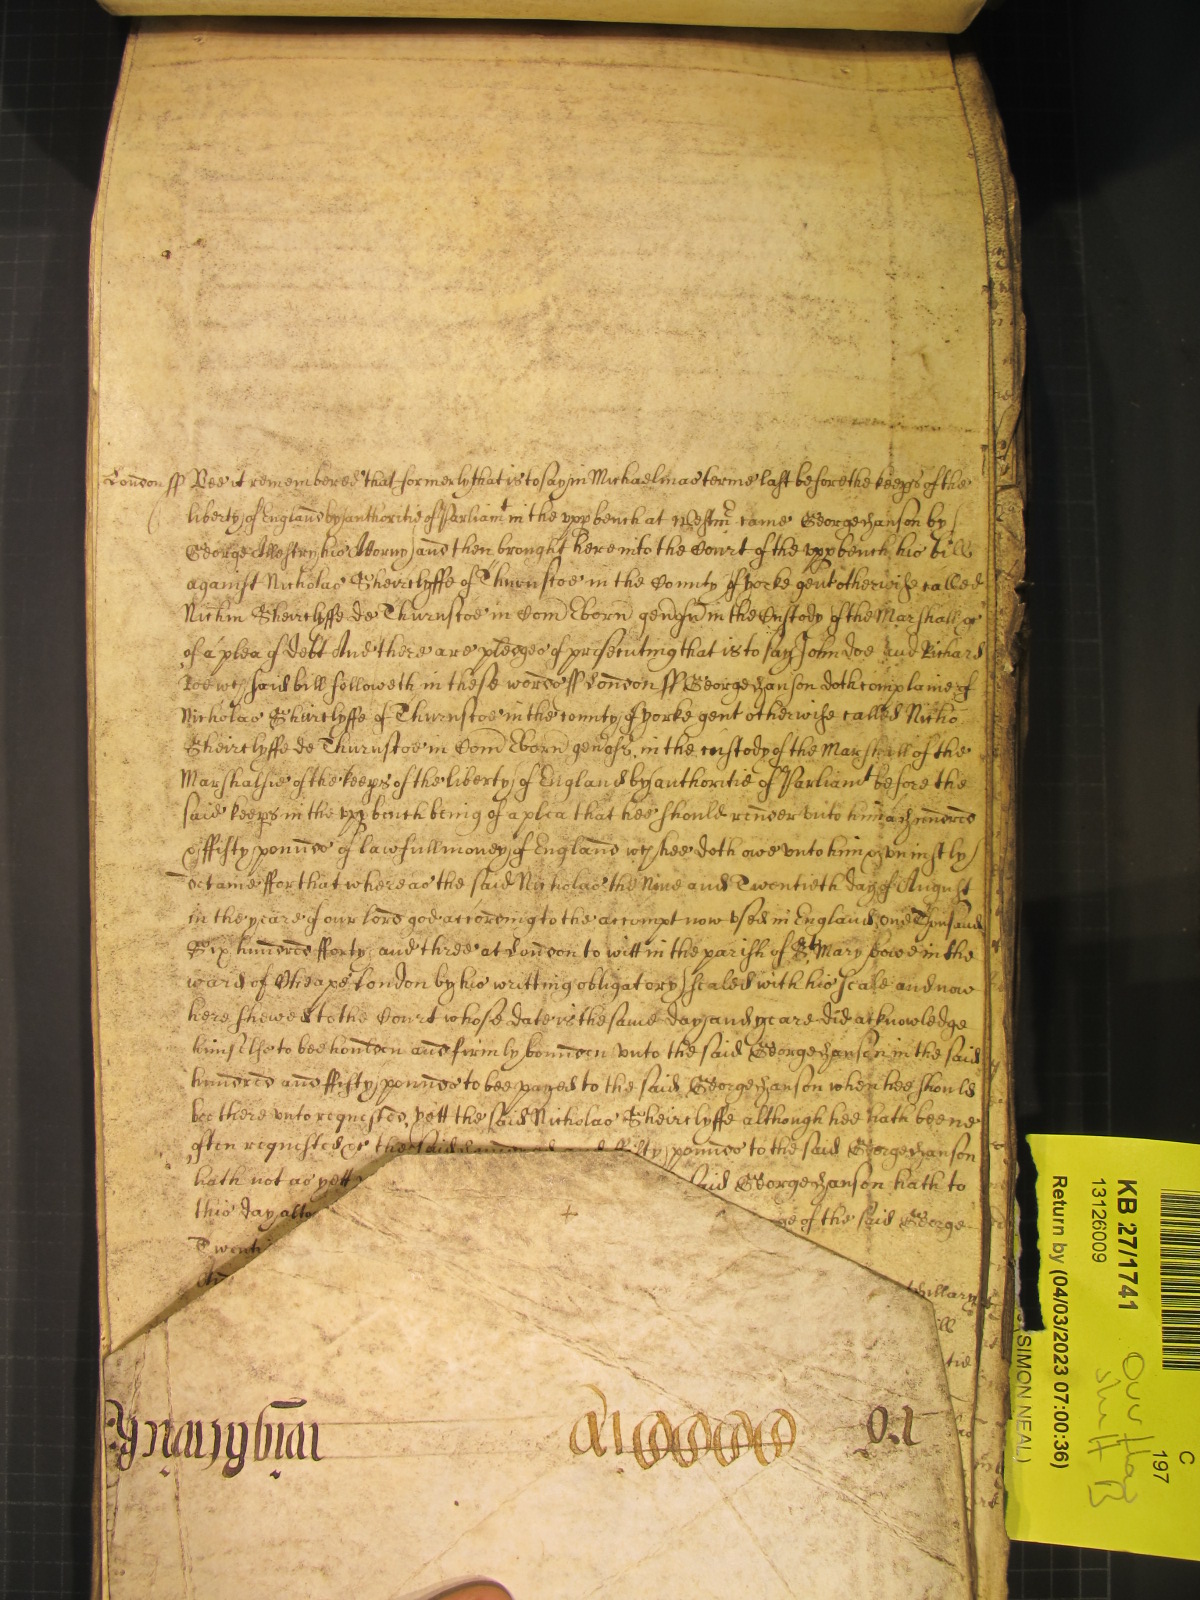 London ss Bee it remembered that formerly that is to say in Michaelmas terme last before the keeps of the
liberty of England by authoritie of Parliamt in the upp bench at Westmr came George Hanson by
George Allestry his Attorny and then brought here into the Court of the upp bench his bill
against Nicholas Sheircliffe of Thurnscoe in the County of Yorke gent otherwise called
Sheircliffe de Thurnscoe in Com Eborum in the Custody of the Marshall &c
of a plea of debt And there are pledges of prosecuting that is to say John Doe and Richard
Roe wch said bill followeth in these words ss London ss George Hanson doth complaine of
Nicholas Shircliffe of Thurnscoe in the county of Yorke gent otherwise called Nicho
Sheircliffe de Thurnscoe in Com Eborum in the custody of the Marshall of the
Marshalsie of the keeps of the liberty of England by authoritie of Parliamt before the
said keeps in the upp bench being of a plea that hee should render unto him a hundred
& ffifty pounds of lawfull money of England wch hee doth owe unto him & uniustly
detaine ffor that whereas the said Nicholas the Nine and Twentieth day of August
in the yeare of our lord god according to the accompt now used in England one Thousand
Six hundred fforty and three at London to witt in the parish of St Mary bowe in the
ward of Cheape London by his writting obligatory sealed with his seale and now
here shewed to the Court whose date is the same day and yeare did acknowledge
himselfe to bee houlden and firmly bounden unto the said George Hanson in the said
hundred and ffifty pounds to bee payed to the said George Hanson when hee should
bee there unto requested, yett the said Nicholas Sheircliffe although hee hath beene
often requested &c the said hundred and ffifty pounds to the said George Hanson
hath not as yett said George Hanson hath to
this day alto ge of the said George
Twenti
hillary
ill
tie
KB 27/1741
13126009
Return by (04/03/2023 07:00:36)
SIMON NEAL)
C
197